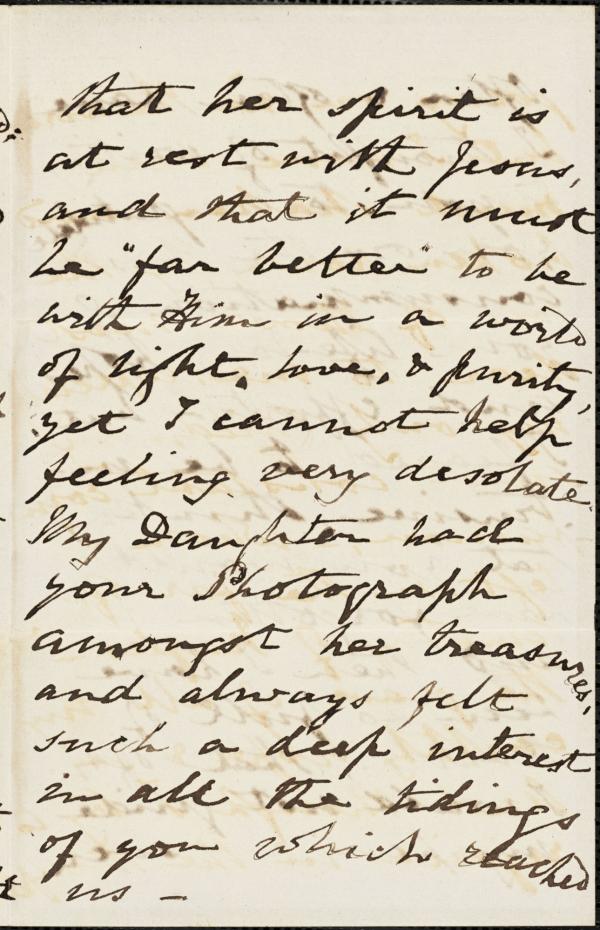 that her spirit is
at rest with Jesus,
and that it must
be "far better" to be
with Him in a world
of light, love, & purity,
yet I cannot help
feeling very desolate.
My Daughter had
your Photograph
amongst her treasures,
and always felt
such a deep interest
in all the tidings
of you which reached
us –